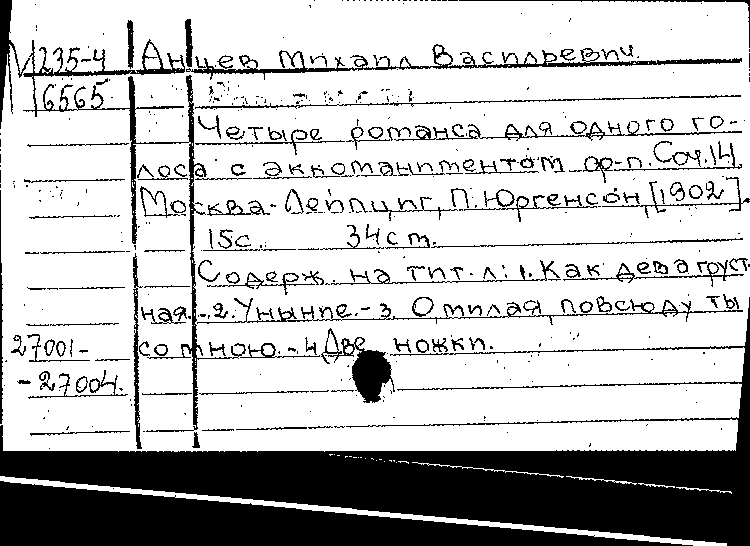 М 235-4 Анцев, Михаил Васильевич.
16565
Четыре романса для одного го-
лоса с аккомпаниментом ф-п. Соч. 14.
Москва-Лейпциг, П. Юргенсон, [1902].
15 с. 34 см.
Содерж. на тит. л.: 1. Как дева груст-
ная. - 2. Уныние. - 3. О, милая, повсюду ты
27001- со мною. - 4. Две ножки.
-27004.